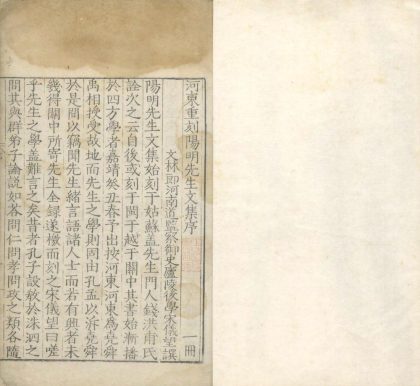 河東重刻陽明先生文集序
文林郎河南道監察御史廬陵後學宋儀望譔
陽明先生文集始刻于姑蘇蓋先生門人錢洪甫氏
詮次之云自後或刻于閩于越于關中其書始漸播
於四方學者嘉靖癸丑春予出按河東河東為堯舜
禹相授受故地而先生之學則固由孔孟以泝堯舜
於是間以竊聞先生緒言語諸人士而若有興者未
幾得關中所寄先生全錄遂檄而刻之宋儀望曰嗟
乎先生之學蓋難言之矣昔者孔子設教於洙泗之
間其與群弟子論說如荅問仁問孝問政之類各隨
一冊